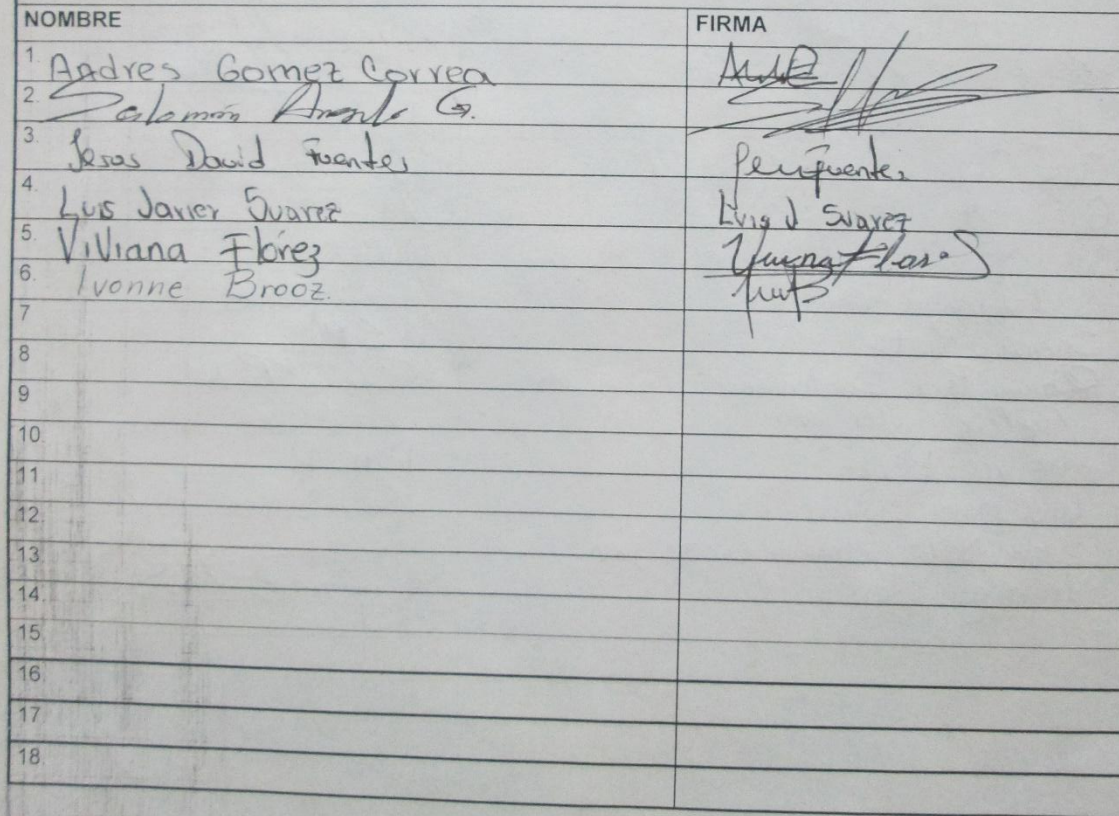 NOMBRE FIRMA
1. Andres Gomez Correa
2. Salomón G.
3. Jesus David Fuentes
4. Luis Javier Suarez Luis J Suarez
5. Viviana Flórez
6. Ivonne Brooz.
7
8
9
10.
11
12.
13
14.
15.
16
17
18.